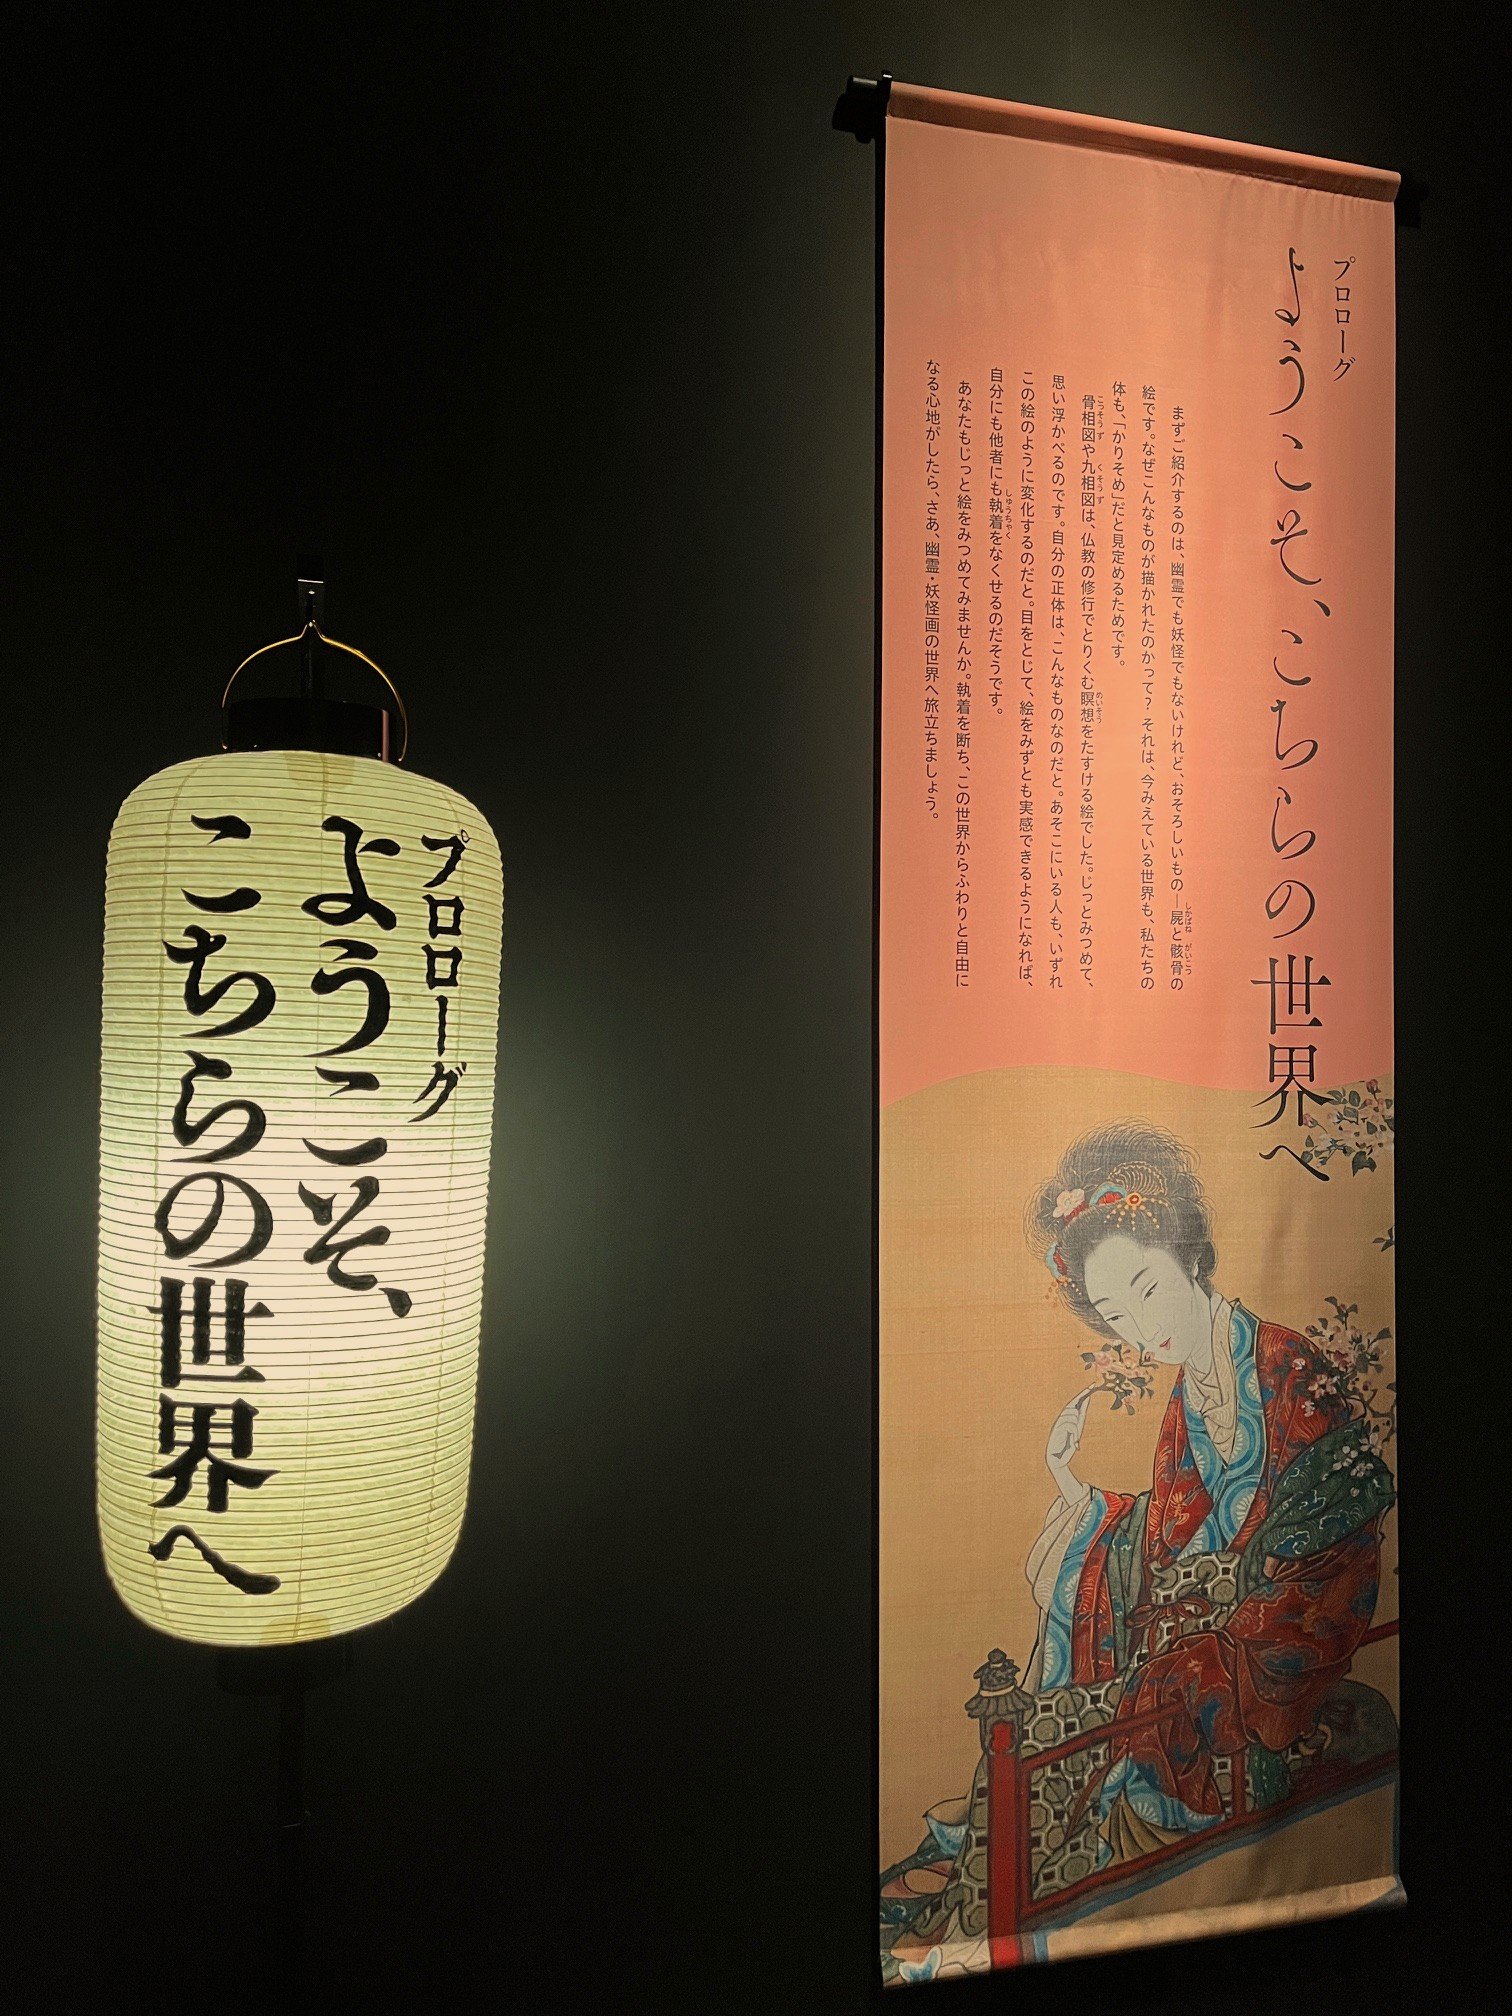 プロローグ
ようこそ、
こちらの世界へ
プロローグ
ようこそ、こちらの世界へ
まずご紹介するのは、幽霊でも妖怪でもないけれど、おそろしいもの―屍と骸骨の
しかばね がいこつ
絵です。なぜこんなものが描かれたのかって? それは、今みえている世界も、私たちの
体も、「かりそめ」だと見定めるためです。
骨相図や九相図は、仏教の修行でとりくむ瞑想をたすける絵でした。じっとみつめて、
こっそうず くそうず めいそう
思い浮かべるのです。自分の正体は、こんなものなのだと。あそこにいる人も、いずれ
この絵のように変化するのだと。目をとじて、絵をみずとも実感できるようになれば、
自分にも他者にも執着をなくせるのだそうです。
しゅうちゃく
あなたもじっと絵をみつめてみませんか。執着を断ち、この世界からふわりと自由に
なる心地がしたら、さあ、幽霊・妖怪画の世界へ旅立ちましょう。